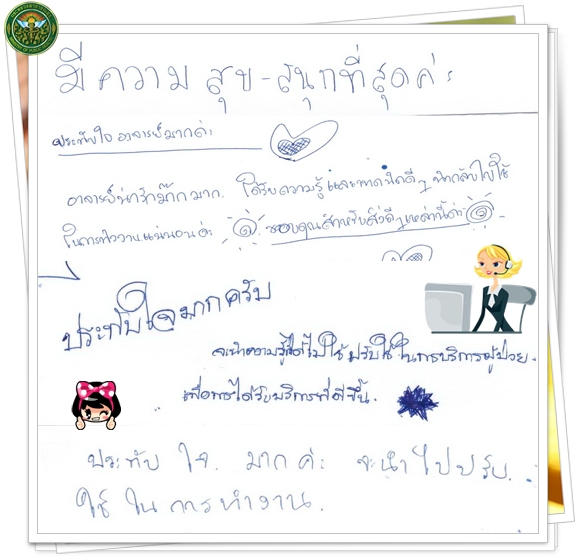 มีความสุข-สนุกที่สุดค่ะ
ประทับใจอาจารย์มากค่ะ
อาจารย์น่ารักมั๊กมาก. ได้รับความรู้และเทคนิคดีๆ นำกลับไปใช้
ในการทำงานแน่นอนค่ะ ขอบคุณสำหรับสิ่งดีๆเหล่านี้ค่ะ
ประทับใจมากครับ
จะนำความรู้ที่ได้ไปใช้ปรับใช้ในการบริการผู้ป่วย.
เพื่อการได้รับบริการที่ดีขึ้น.
ประทับใจ. มากค่ะ จะนำไปปรับ.
ใช้ในการทำงาน.